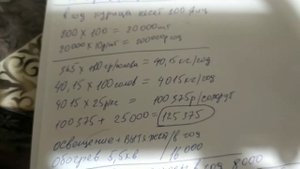 в год курица несёт 200 яиц
200 x 100 = 20000шт
20000 x 10руб = 200000руб
365 x 110 гр/голова = 40,15 кг/год
40,15 x 100 голов = 4015 кг/год
4015 x 25рас = 100375р/год
100375 + 25000 = 125375
освещение + вытяжка/в год
Обогрев 5,5кв / 16 000
год 8000